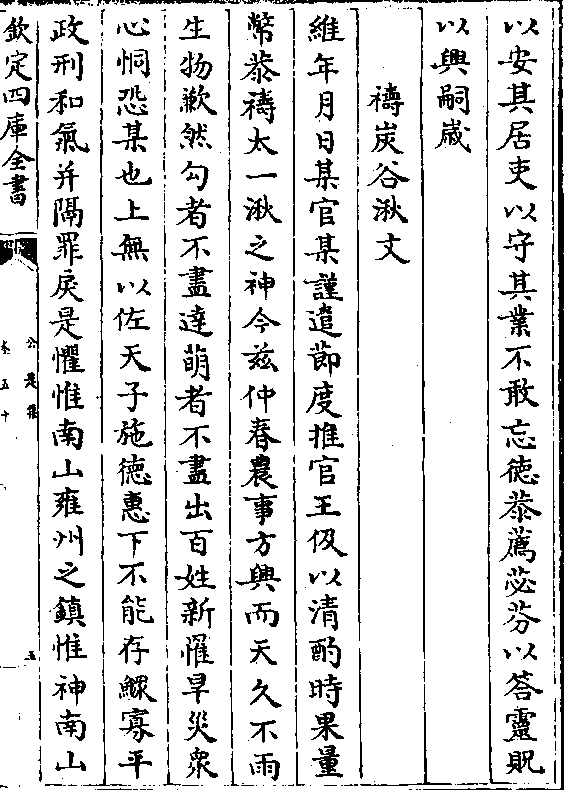 以安其居吏以守其業不敢忘德恭薦苾芬以答靈貺
以興嗣歲
禱炭谷湫文
維年月日某官某謹遣節度推官王伋以清酌時果量
幣恭禱太一湫之神今兹仲春農事方興而天久不雨
生物歉然勾者不盡達萌者不盡出百姓新罹旱災衆
心恫恐某也上無以佐天子施德惠下不能存鰥寡平
政刑和氣并隔罪戾是懼惟南山雍州之鎮惟神南山
欽定四庫全書
公是集
卷五十
五